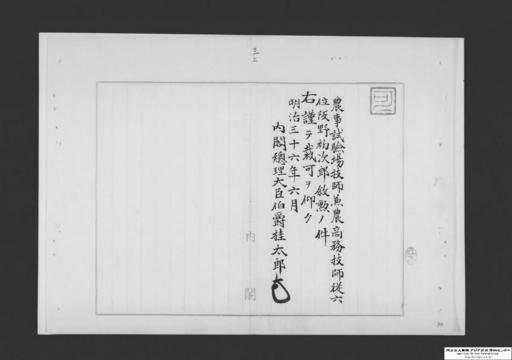 農事試驗場技師兼農商務技師從六
位阪野初次郎敘勲ノ件
右謹テ裁可ヲ仰ク
明治三十六年六月
内閣總理大臣伯爵桂太郎
内閣